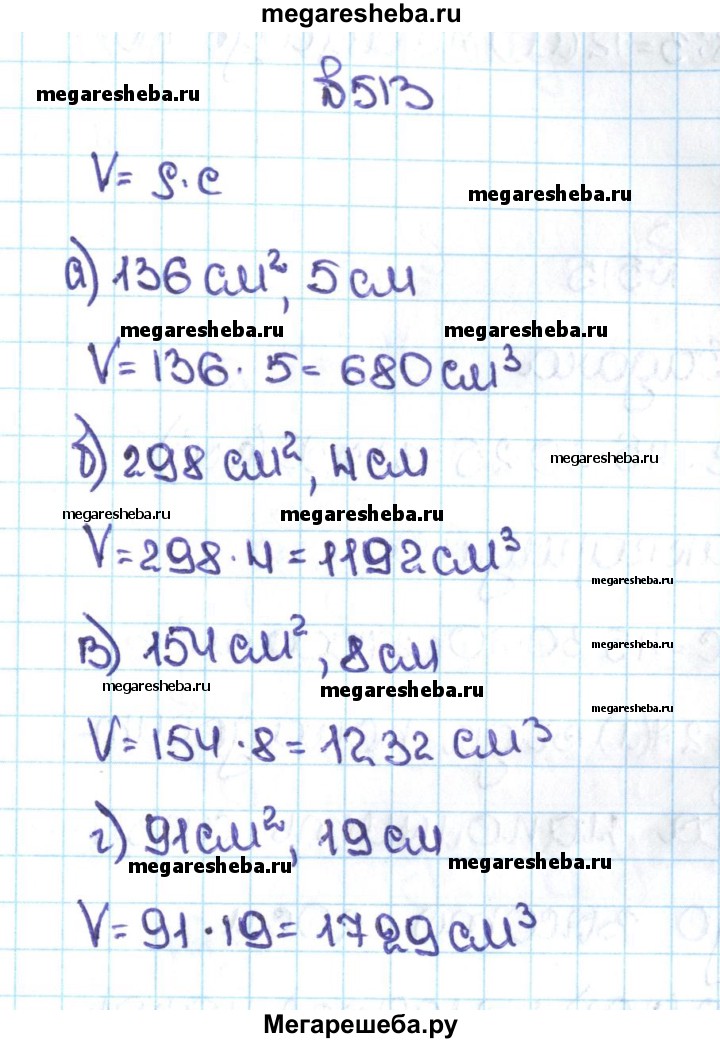 megaresheba.ru
megaresheba.ru
№513
V = S · c
megaresheba.ru
а) 136 см², 5 см
megaresheba.ru megaresheba.ru
V = 136 · 5 = 680 см³
б) 298 см², 4 см
megaresheba.ru
megaresheba.ru megaresheba.ru
V = 298 · 4 = 1192 см³
megaresheba.ru
в) 154 см², 8 см
megaresheba.ru
megaresheba.ru megaresheba.ru
megaresheba.ru
V = 154 · 8 = 1232 см³
г) 91 см², 19 см
megaresheba.ru megaresheba.ru
V = 91 · 19 = 1729 см³
Мегарешеба.ру